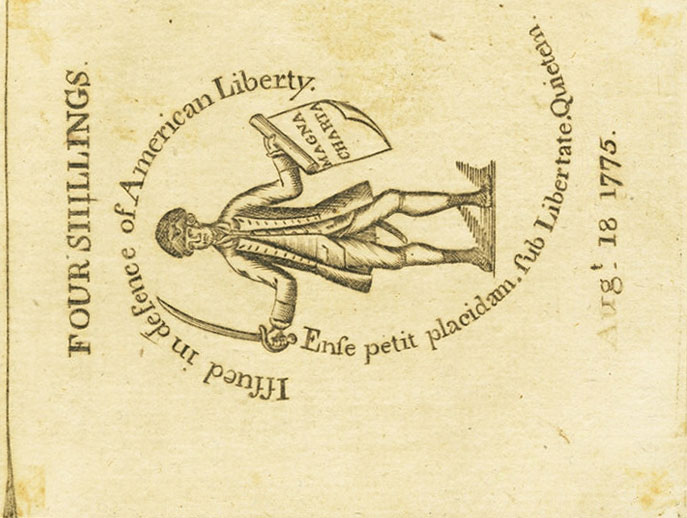 FOUR SHILLINGS.
Iſſued in defence of American Liberty.
MAGNA
CHARTA
Enſe petit placidam. ſub Libertate. Quietem.
Augt. 18 1775.